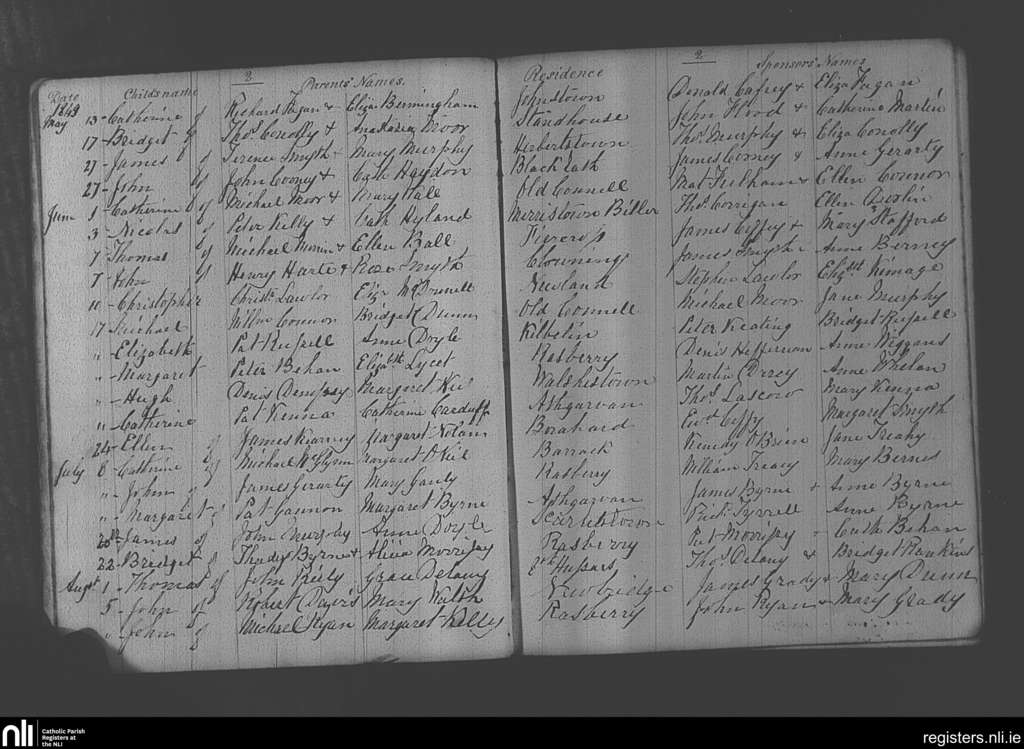 2 2
Date Child's name Parents' Names. Residence Sponsors' Names
1849
May 13 - Catherine of Richard Fagan & Eliza Bermingham Johnstown Donald Cafrey & Eliza Fagan
17 - Bridget of Thos. Conolly & Moor Standhouse John Flood & Catherine Martin
21 - James of Terence Smyth & Mary Murphy Herbertstown Thos. Murphy & Eliza Conolly
27 - John of John Cooney & Cath Haydon Black Lath James Cooney & Anne Gerarty
June 1 - Catherine of Michael Moor & Mary Hall Old Connell Mat Fulham & Ellen Connor
3 - Nicolas of Peter Kelly & Cath Hyland Morristown Biller Thos. Corrigan Ellen
7 Thomas of Michael & Ellen Ball James & Mary Stafford
7 - John of Henry Harte & Rose Smyth Clownings James Smyth Anne Berney
10 - Christopher Christr. Lawlor Eliza McDonnell Newland Stephen Lawlor Elizbth Kinnage
17 Michael Connor Bridget Dunn Old Connell Michael Moor Jane Murphy
" - Elizabeth Pat Russell Anne Doyle Kilbelin Peter Keating Bridget Russell
" - Margaret Peter Behan Elizabth Lycet Rasberry Denis Heffernon Anne Wiggans
" - Hugh Denis Dempsey Margaret Walshestown Martin Anne Whelan
" Catherine Pat Kenna Catherine Cardiff Athgarvan Thos. Mary Kenna
24 - Ellen of James Kearney Margaret Nolan Margaret Smyth
July 8 - Catherine of Michael McGlynn Margaret O'Neil Barrack Kennedy O'Brien Jane Treahy
" - John of James Gerarty Mary Gandy Rasberry William Treacy Mary Bernes
" - Margaret of Pat Gannon Margaret Byrne Athgarvan James Byrne & Anne Byrne
20th - James of John Murphy Anne Doyle Scarletstown Tyrrell Anne Byrne
22 - Bridget of Thady Byrne & Alicia Morrissy Rasberry Pat Morrissy & Cath Behan
Augst. 1 - Thomas of John Reily Grace Delany 8th Hussars Thos. Delany & Bridget Rankins
5 - John of Robert Mary Newbridge James Grady & Mary Dunn
" - John of Michael Ryan Margaret Kelly Rasberry John Ryan & Mary Grady
nli Catholic Parish
Registers at
the NLI
registers.nli.ie